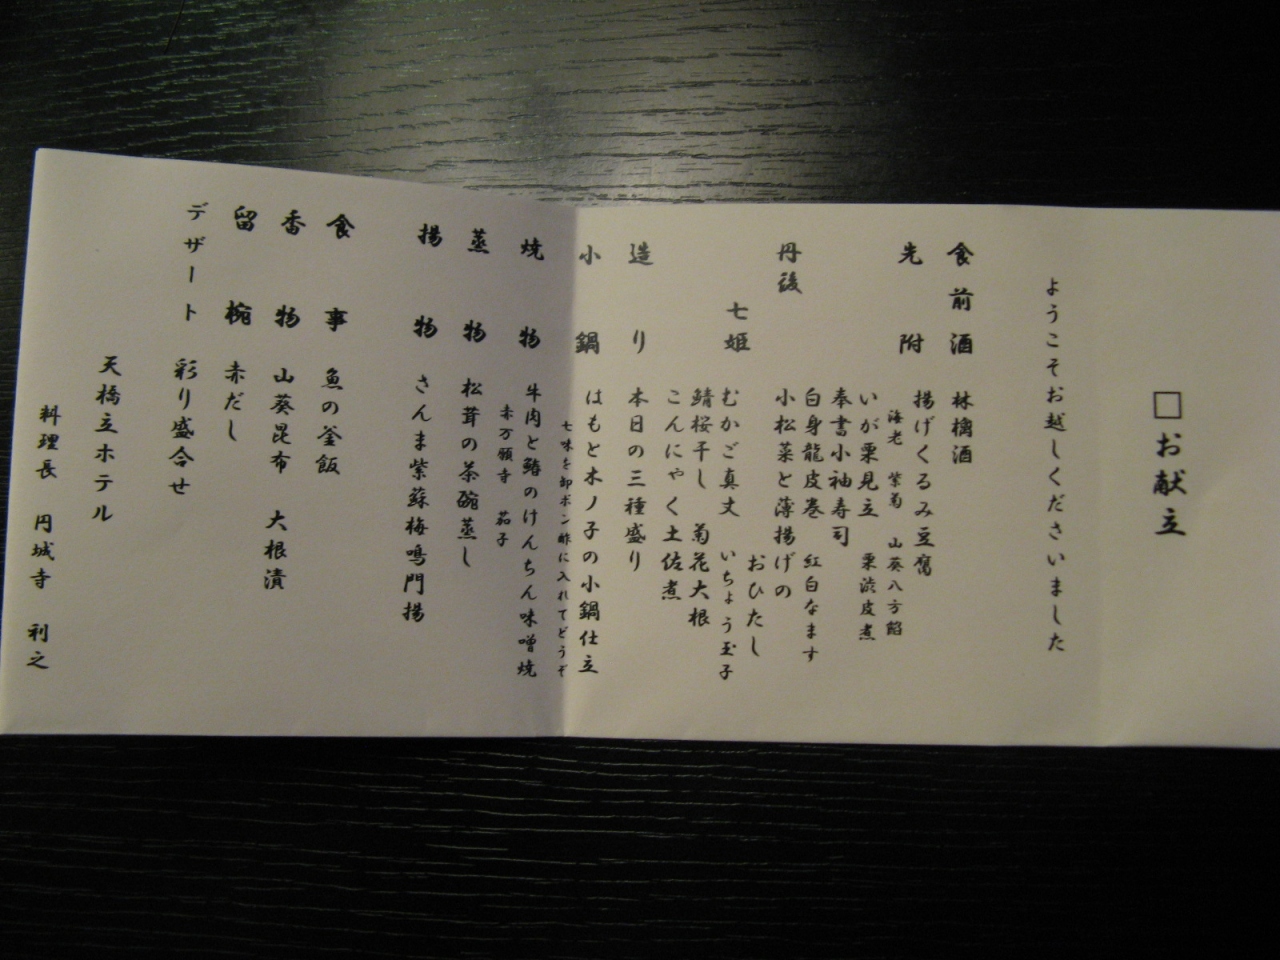 □お献立
ようこそお越しくださいました
食前酒 林檎酒
先附 揚げくるみ豆腐
海老 紫菊 山葵八方餡
いが栗見立 栗渋皮煮
奉書小袖寿司
白身龍皮巻 紅白なます
丹後 小松菜と薄揚げの
おひたし
七姫 むかご真丈 いちょう玉子
鯖桜干し 菊花大根
こんにゃく土佐煮
造り 本日の三種盛り
小鍋 はもと木ノ子の小鍋仕立
七味を卸ポン酢に入れてどうぞ
焼物 牛肉と鰆のけんちん味噌焼
赤万願寺 茄子
蒸物 松茸の茶碗蒸し
揚物 さんま紫蘇梅鳴門揚
食事 魚の釜飯
香物 山葵昆布 大根漬
留椀 赤だし
デザート 彩り盛合せ
天橋立ホテル
料理長 円城寺 利之